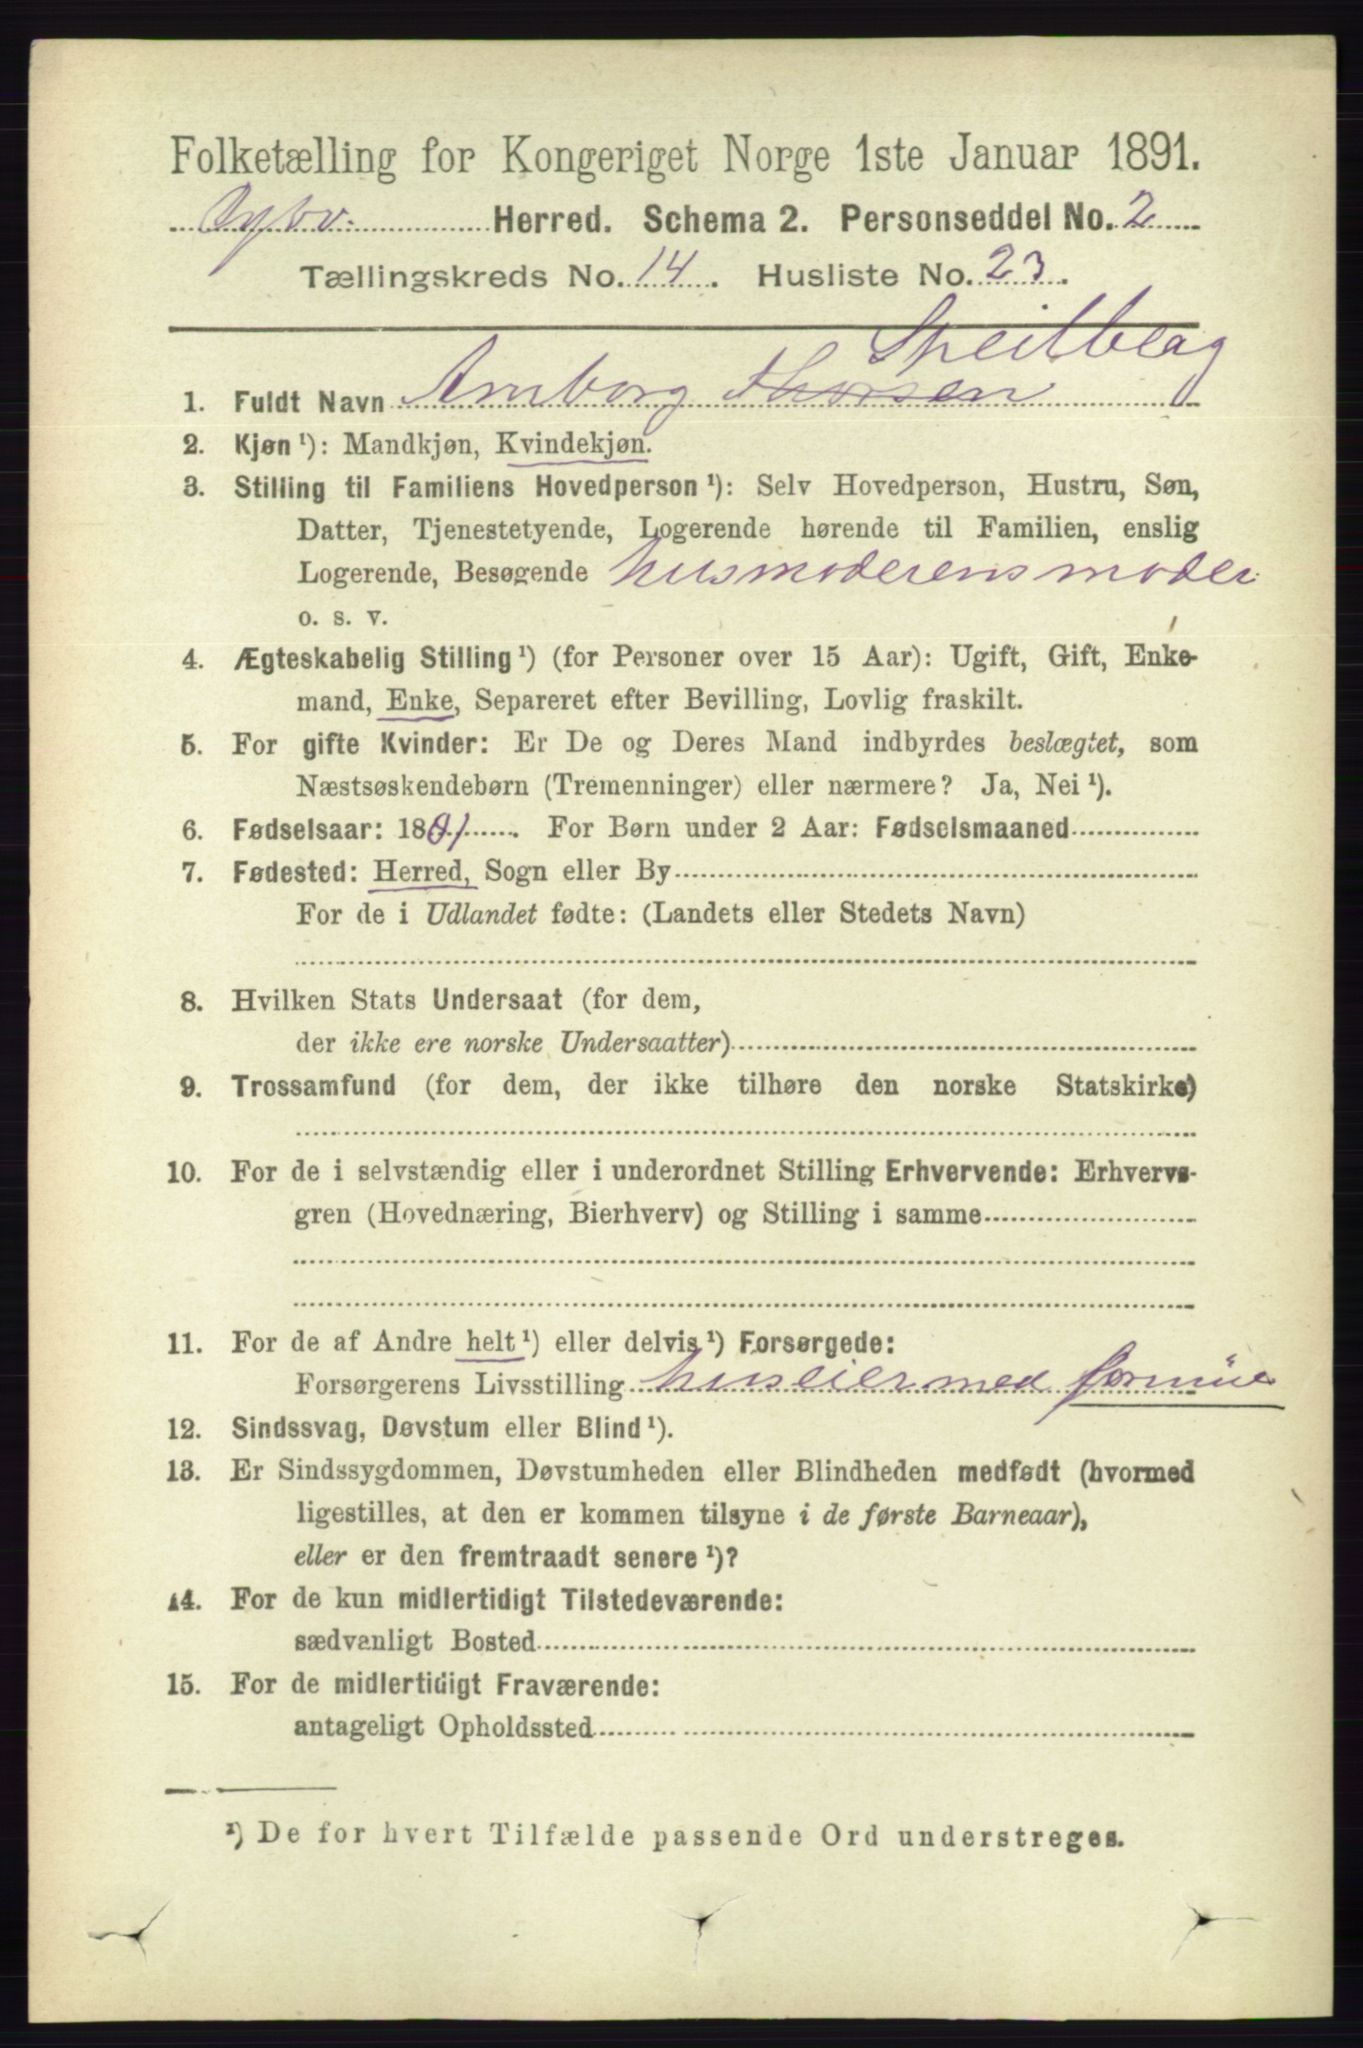 Folketælling for Kongeriget Norge 1ste Januar 1891.
Herred. Schema 2. Personseddel No. 2
Tællingskreds No. 14. Husliste No. 23.
Speilberg
1. Fuldt Navn Amborg Thorsen
2. Kjøn ¹): Mandkjøn, Kvindekjøn.
3. Stilling til Familiens Hovedperson ¹): Selv Hovedperson, Hustru, Søn,
Datter, Tjenestetyende, Logerende hørende til Familien, enslig
Logerende, Besøgende husmoderens moder
o. s. v.
4. Ægteskabelig Stilling ¹) (for Personer over 15 Aar): Ugift, Gift, Enke-
mand, Enke, Separeret efter Bevilling, Lovlig fraskilt.
5. For gifte Kvinder: Er De og Deres Mand indbyrdes beslægtet, som
Næstsøskendebørn (Tremenninger) eller nærmere? Ja, Nei ¹).
6. Fødselsaar: 1801. For Børn under 2 Aar: Fødselsmaaned
7. Fødested: Herred, Sogn eller By
For de i Udlandet fødte: (Landets eller Stedets Navn)
8. Hvilken Stats Undersaat (for dem,
der ikke ere norske Undersaatter)
9. Trossamfund (for dem, der ikke tilhøre den norske Statskirke)
10. For de i selvstændig eller i underordnet Stilling Erhvervende: Erhvervs-
gren (Hovednæring, Bierhverv) og Stilling i samme
11. For de af Andre helt ¹) eller delvis ¹) Forsørgede:
Forsørgerens Livsstilling huseier med formüe
12. Sindssvag, Døvstum eller Blind ¹).
13. Er Sindssygdommen, Døvstumheden eller Blindheden medfødt (hvormed
ligestilles, at den er kommen tilsyne i de første Barneaar),
eller er den fremtraadt senere ¹)?
14. For de kun midlertidigt Tilstedeværende:
sædvanligt Bosted
15. For de midlertidigt Fraværende:
antageligt Opholdssted
¹) De for hvert Tilfælde passende Ord understreges.